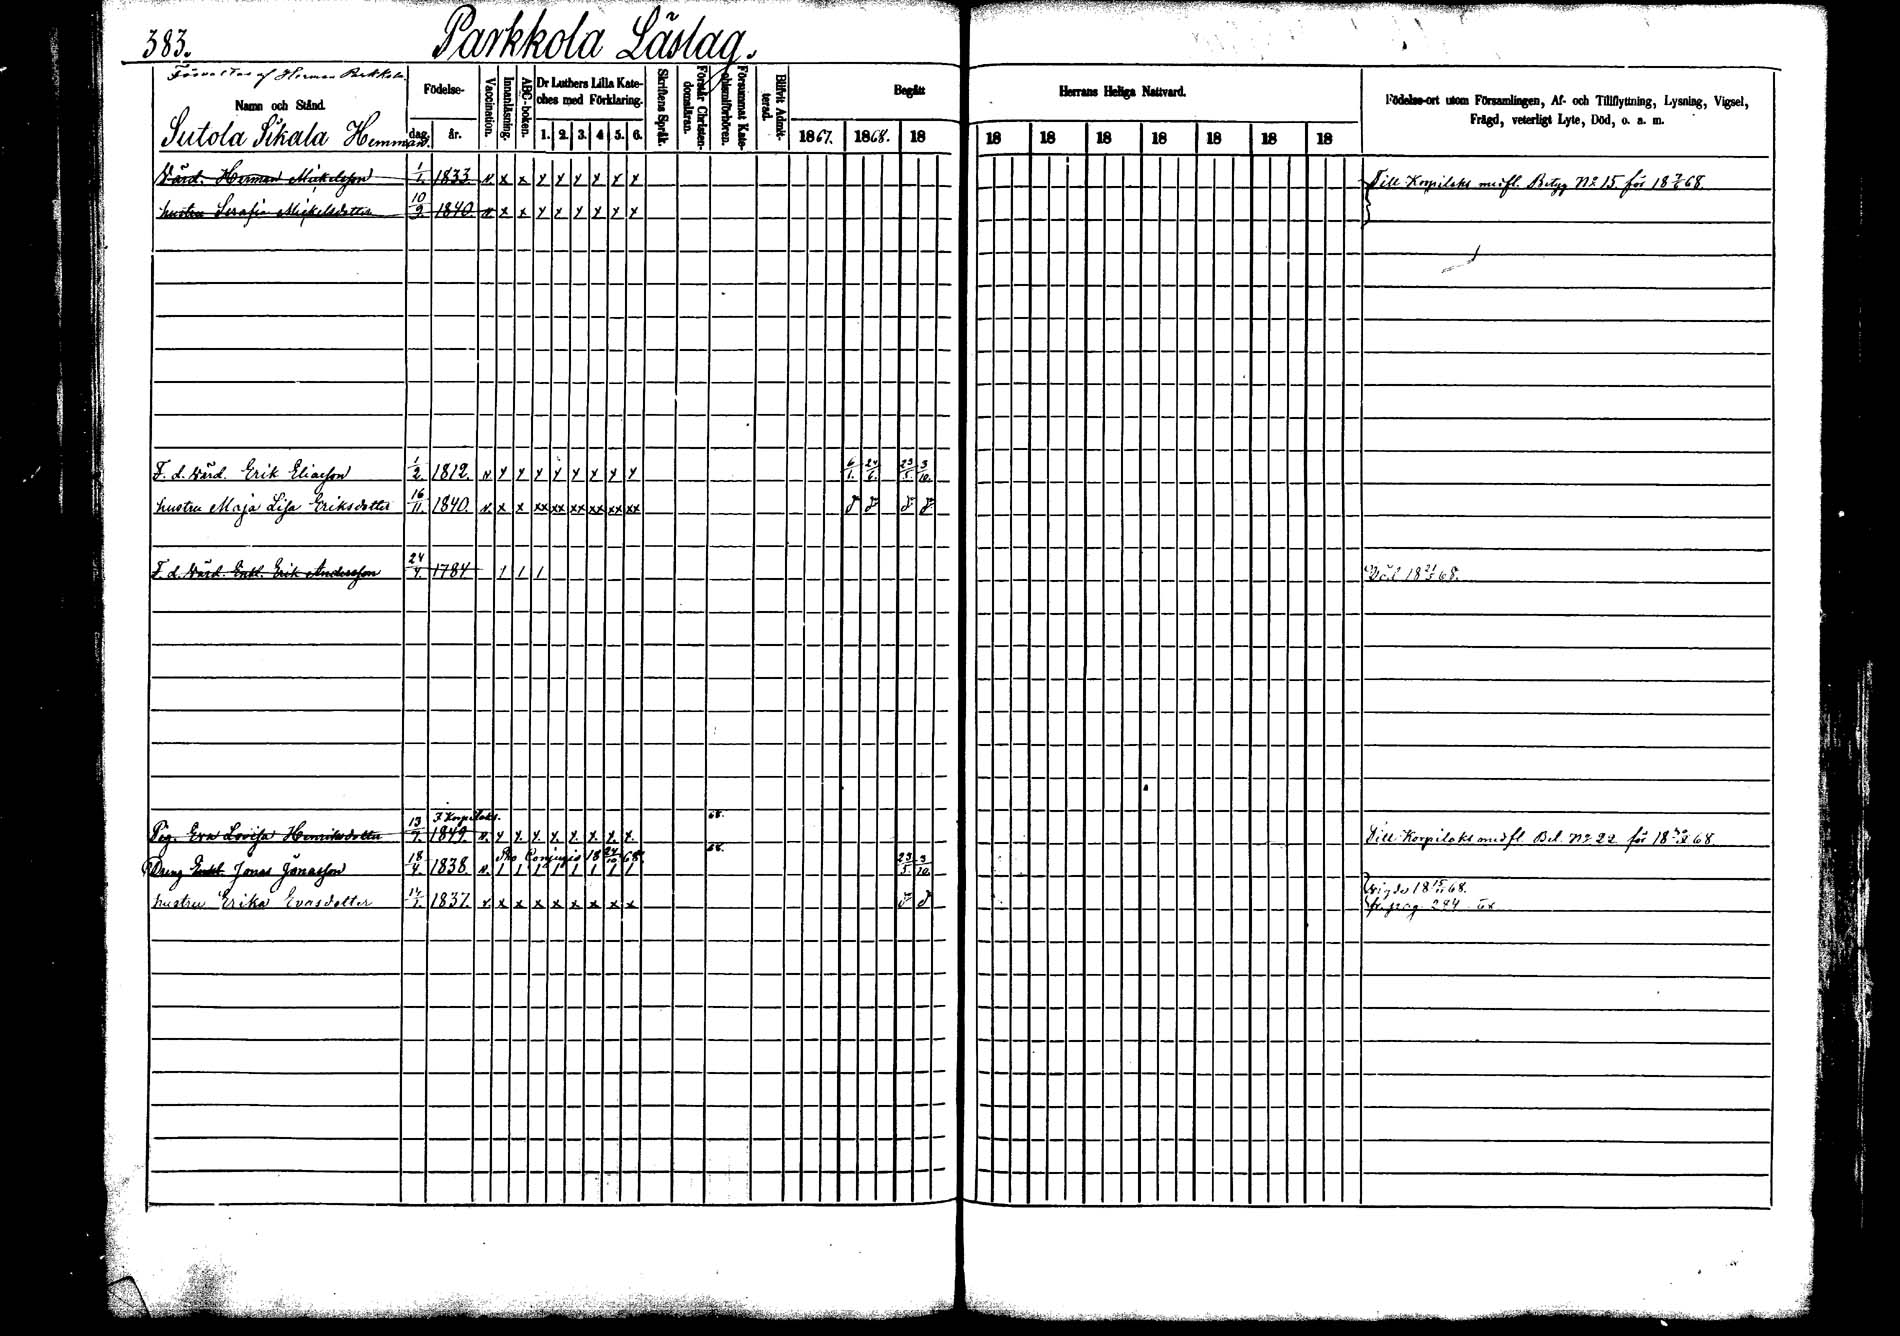 383. Parkkola Läslag.
Förvaltas af Herman Parkkola
Namn och Stånd.
Sutola Sikala Hemman.
Födelse-
dag. år.
Vaccination.
Innanläsning.
ABC-boken.
Dr Luthers Lilla Kate-
ches med Förklaring.
1. 2. 3. 4 5. 6.
Skriftens Språk.
Förstår Christen-
domsläran.
Försummat Kate-
chismiförhören.
Blifvit Admit-
terad.
Begått
1867. 1868. 18
Herrans Heliga Nattvard.
18 18 18 18 18 18 18
Födelse-ort utom Församlingen, Af- och Tillflyttning, Lysning, Vigsel,
Frägd, veterligt Lyte, Död, o. a. m.
Värd. Herman Mickelsson 1/1. 1833. v. x x y y y y y y Till Korpilaks mu fl. Betyg No 15 för 68.
hustru Serafia Mickelsdotter 10/9. 1840. v x x y y y y y y
F. d. Värd. Erik Eliasson 1/2. 1812. v y y y y y y y y 6/1. 24/6. 23/5. 3/10.
hustru Maja Lisa Eriksdotter 16/11. 1840. v. x x xx xx xx xx xx xx
F. d. Värd. Enkl. Erik Andersson 24/4. 1784 1 1 1 Död 18 21/5 68.
F. Korpilaks. 68.
Pig. Eva Lovisa Henriksdotter 13/7. 1849. v. y y. y. y. y. y. y. y. Till Korpilaks med fl. Bet. No 22 för 68
Pro Conjugio 18 24/10 68. 68.
Dreng Enkl. Jonas Jonasson 18/4. 1838. v. 1 1 1 1 1 1 1 1 23/5. 3/10.
vigde 18 15/11 68.
hustru Erika Evasdotter 1837. v. x x x x x x x x fr. pag. 284